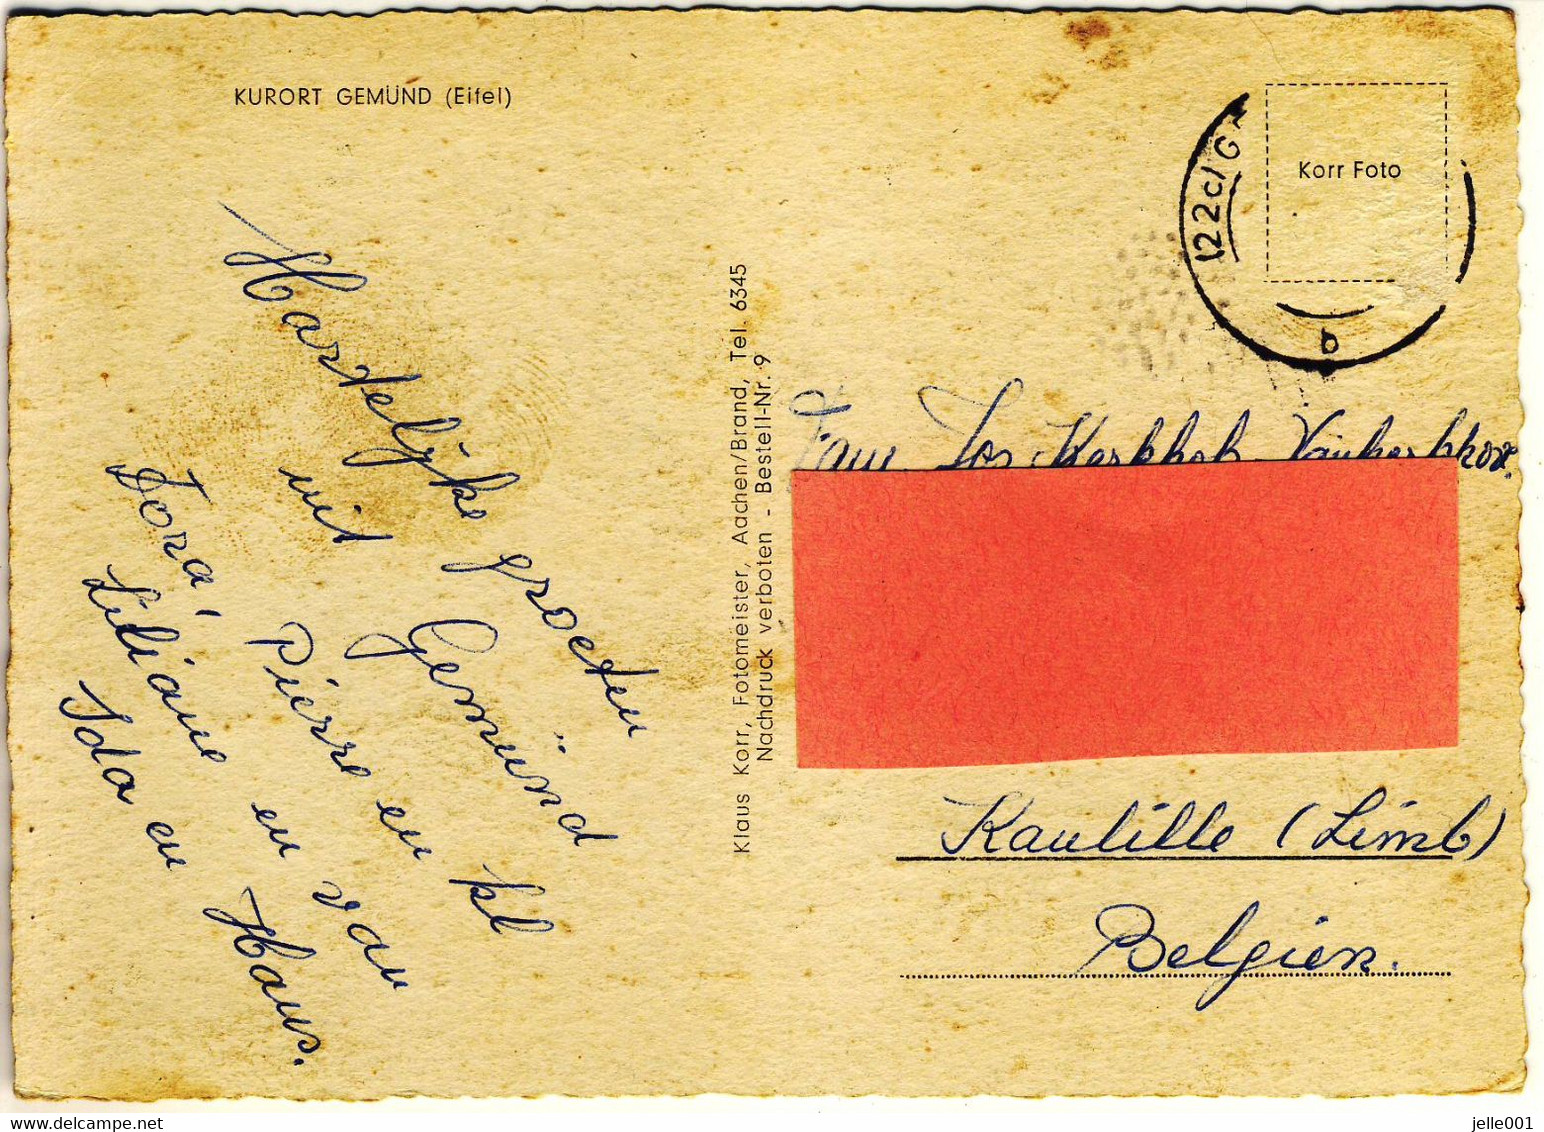 KURORT GEMÜND (Eifel)
Hartelijke groeten
uit Gemünd
Pierre en kl
Tora,
Liliane en van
Ida en Hans.
Klaus Korr, Fotomeister, Aachen/Brand, Tel. 6345
Nachdruck verboten - Bestell-Nr. 9
Korr Foto
(22c) G
b
Fam Jos Kerkhofs
Kaulille (Limb)
Belgien.
jelle001